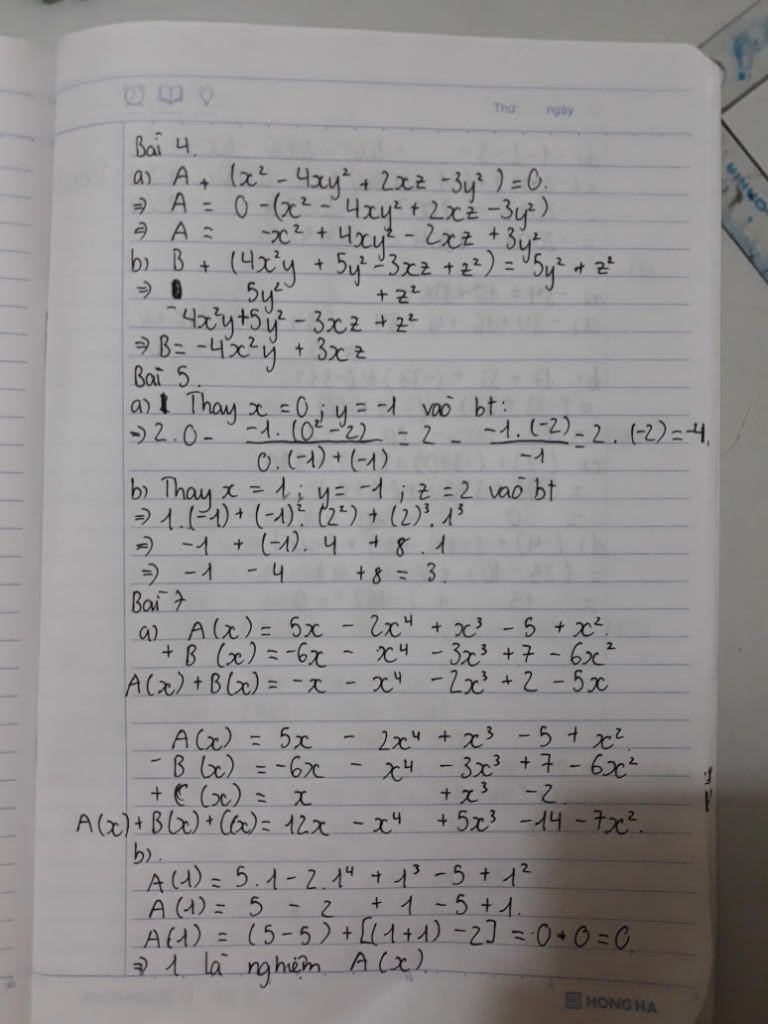 Thứ ngày
Bài 4.
a) A + (x² - 4xy² + 2xz - 3y²) = 0.
⇒ A = 0 - (x² - 4xy² + 2xz - 3y²)
⇒ A = -x² + 4xy² - 2xz + 3y²
b) B + (4x²y + 5y² - 3xz + z²) = 5y² + z²
⇒ 5y² + z²
-4x²y + 5y² - 3xz + z²
⇒ B = -4x²y + 3xz
Bài 5.
a) Thay x = 0 ; y = -1 vào bt:
⇒ 2.0 - \frac{-1.(0² - 2)}{0.(-1) + (-1)} = 2 - \frac{-1.(-2)}{-1} = 2.(-2) = -4.
b) Thay x = 1 ; y = -1 ; z = 2 vào bt
⇒ 1.(-1) + (-1)².(2²) + (2)³.1³
⇒ -1 + (-1).4 + 8.1
⇒ -1 - 4 + 8 = 3.
Bài 7
a) A(x) = 5x - 2x⁴ + x³ - 5 + x².
+ B(x) = -6x - x⁴ - 3x³ + 7 - 6x²
A(x) + B(x) = -x - x⁴ - 2x³ + 2 - 5x
A(x) = 5x - 2x⁴ + x³ - 5 + x²
- B(x) = -6x - x⁴ - 3x³ + 7 - 6x²
+ C(x) = x + x³ - 2
A(x) + B(x) + C(x) = 12x - x⁴ + 5x³ - 14 - 7x².
b).
A(1) = 5.1 - 2.1⁴ + 1³ - 5 + 1²
A(1) = 5 - 2 + 1 - 5 + 1.
A(1) = (5 - 5) + [(1 + 1) - 2] = 0 + 0 = 0.
⇒ 1 là nghiệm A(x)
HONG HA